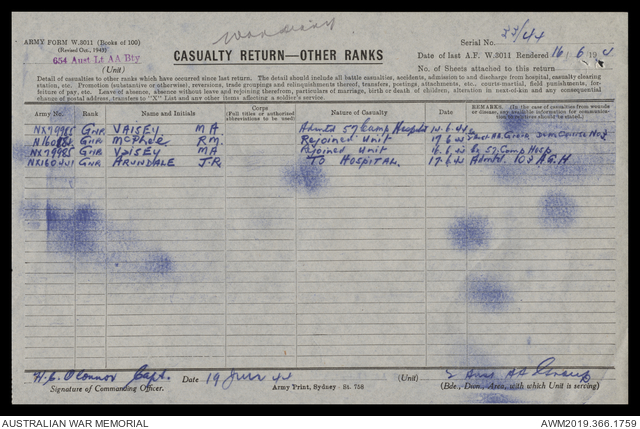 War diary
ARMY FORM W.3011 (Books of 100)
(Revised Oct., 1943)
Serial No. 23/44
654 Aust Lt AA Bty
(Unit)
CASUALTY RETURN—OTHER RANKS
Date of last A.F. W.3011 Rendered 16 6 194
No. of Sheets attached to this return
Detail of casualties to other ranks which have occurred since last return. The detail should include all battle casualties, accidents, admission to and discharge from hospital, casualty clearing
station, etc. Promotion (substantive or otherwise), reversions, trade groupings and relinquishments thereof, transfers, postings, attachments, etc., courts-martial, field punishments, for-
feiture of pay, etc. Leave of absence, absence without leave and rejoining therefrom, particulars of marriage, birth or death of children, alteration in next-of-kin and any consequential
change of postal address, transfers to "X" List and any other items affecting a soldier's service.
Army No. Rank Name and Initials Corps (Full titles or authorised abbreviations to be used) Nature of Casualty Date REMARKS. (In the case of casualties from wounds or disease, any available information for communication to relatives should be stated.)
NX79985 GNR VAISEY M A Admtd 57 Camp Hospital 14.6.44
GNR McPhole R M. Rejoined Unit 17.6.44
NX79985 GNR VAISEY M A Rejoined Unit 16.6.44 Ex 57 Camp Hosp
GNR ARUNDALE J.R. TO HOSPITAL. 17.6.44 Admtd. 103 AGH
H.C. O'Connor Capt. Date 19 Jun 44 (Unit) 2 Aust AA Group
Signature of Commanding Officer. Army Print, Sydney—St. 758 (Bde., Dum., Area, with which Unit is serving)
AUSTRALIAN WAR MEMORIAL AWM2019.366.1759